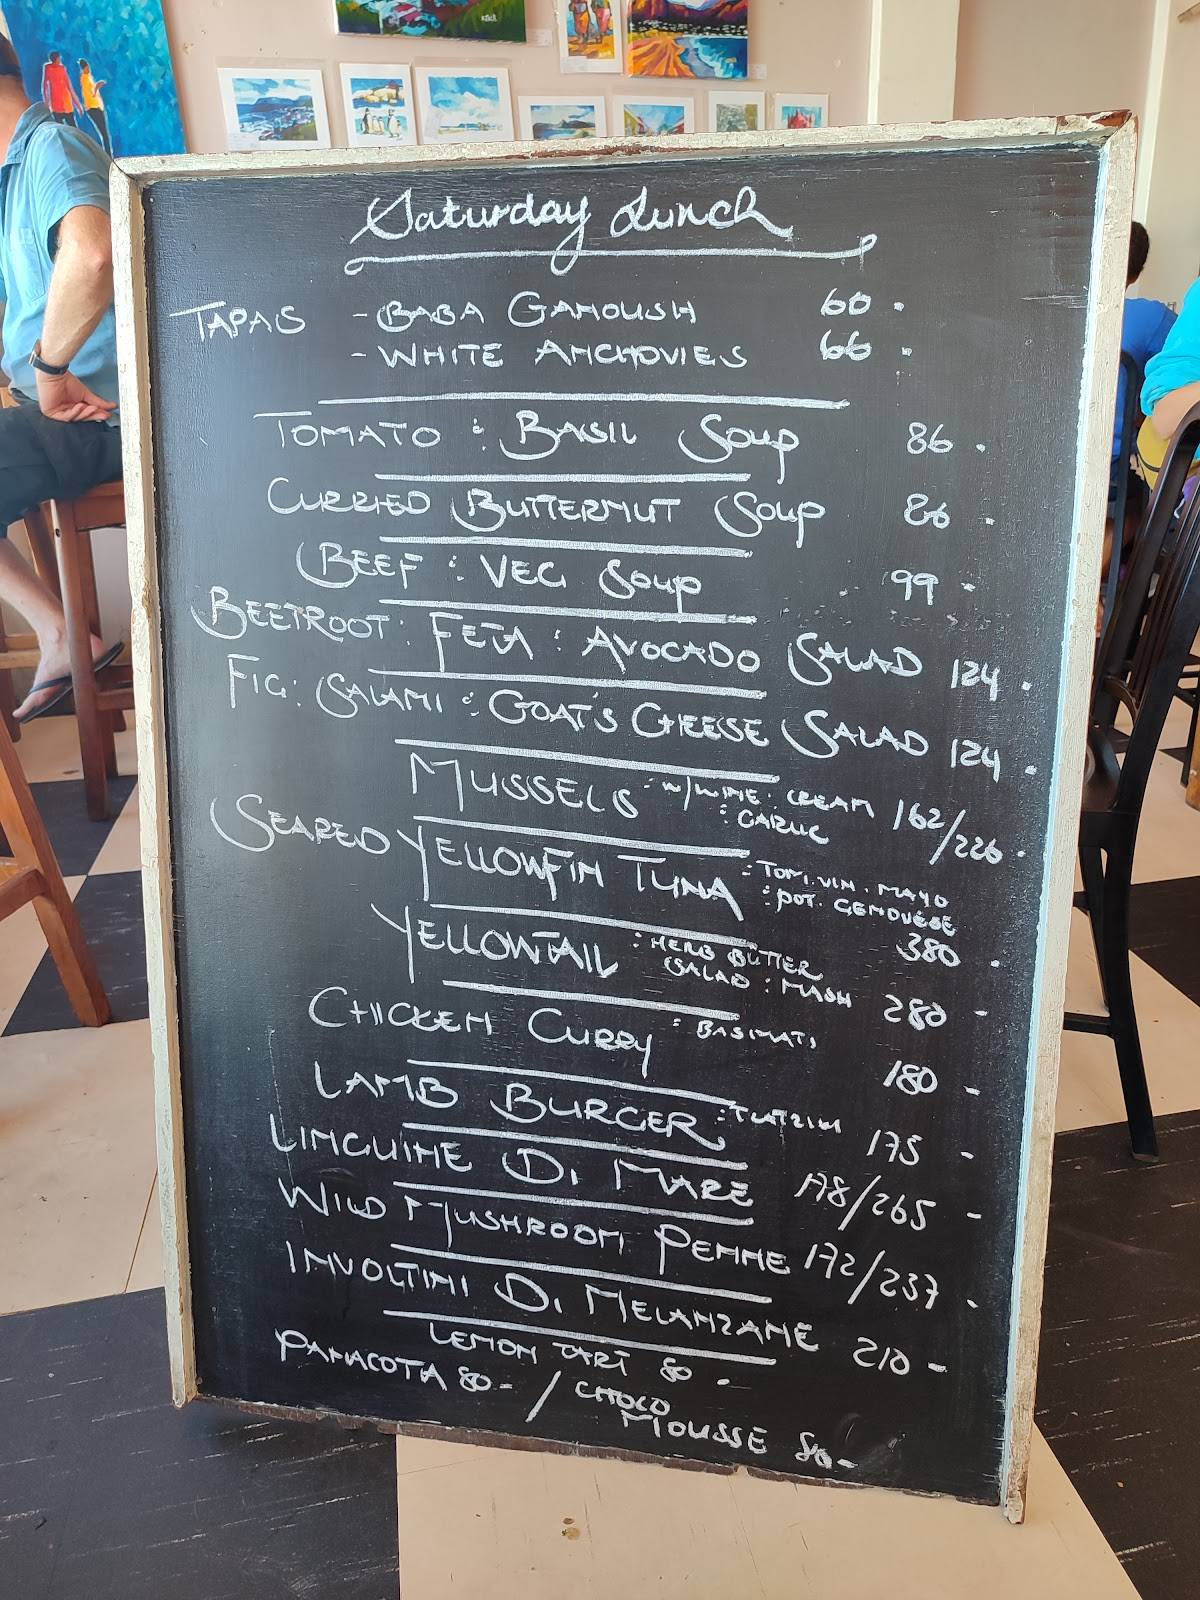 Saturday Lunch
TAPAS - BABA GANOUSH 60.
- WHITE ANCHOVIES 66.
TOMATO : BASIL SOUP 86.
CURRIED BUTTERNUT SOUP 86.
BEEF : VEG SOUP 99-
BEETROOT : FETA : AVOCADO SALAD 124.
FIG : SALAMI : GOAT'S CHEESE SALAD 124.
MUSSELS : W/WINE : CREAM 162/226.
: GARLIC
SEARED YELLOWFIN TUNA : TOM. VIN. MAYO
: POT. GENOVESE
380.
YELLOWTAIL : HERB BUTTER
SALAD : MASH 280-
CHICKEN CURRY : BASIMATI
180-
LAMB BURGER : TZATZIKI 175-
LINGUINE DI MARE 178/265-
WILD MUSHROOM PENNE 172/237.
INVOLTINI DI MELANZANE 210-
LEMON TART 80.
PANACOTA 80- / CHOCO
MOUSSE 80-